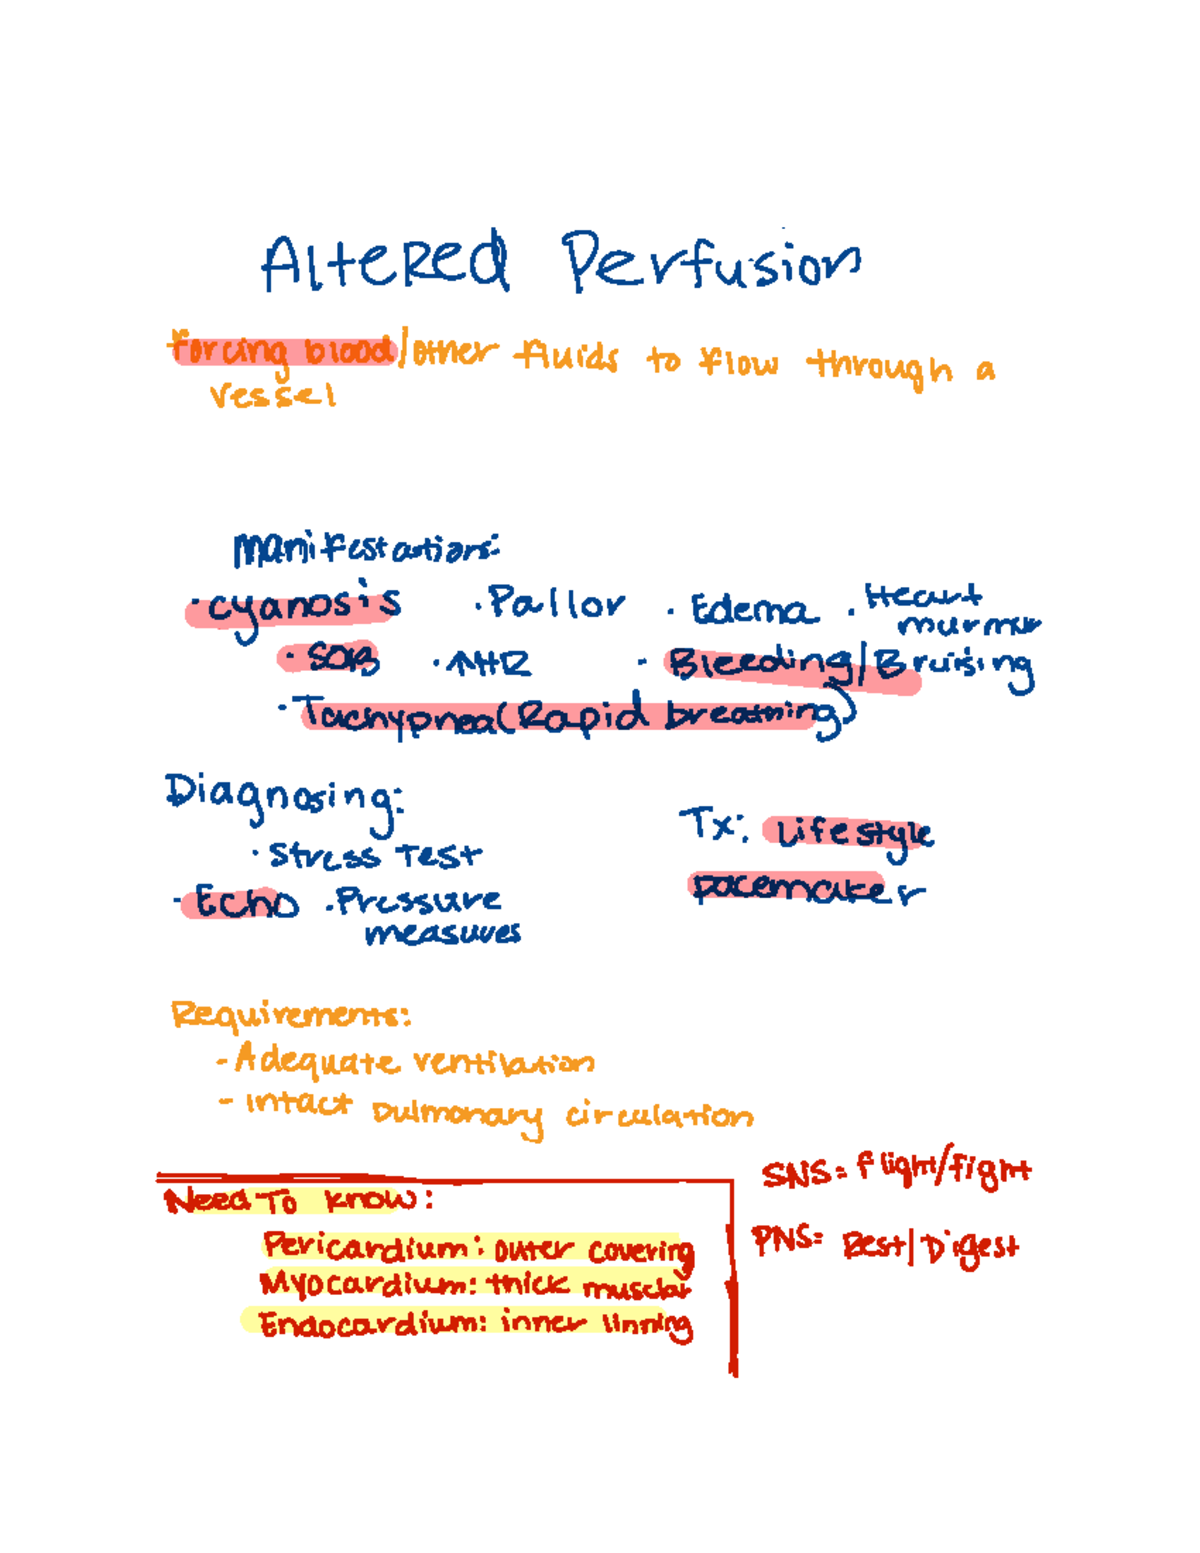 Altered Perfusion
forcing blood/other fluids to flow through a
vessel
Manifestations:
· cyanosis · Pallor · Edema · Heart
murmur
· SOB · ↑HR · Bleeding/Bruising
· Tachypnea (Rapid breathing)
Diagnosing:
· Stress Test
· Echo · Pressure
measures
Tx: Lifestyle
pacemaker
Requirements:
- Adequate ventilation
- Intact pulmonary circulation
Need To know:
Pericardium: outer covering
Myocardium: thick muscular
Endocardium: inner linning
SNS = flight/fight
PNS = Rest/Digest